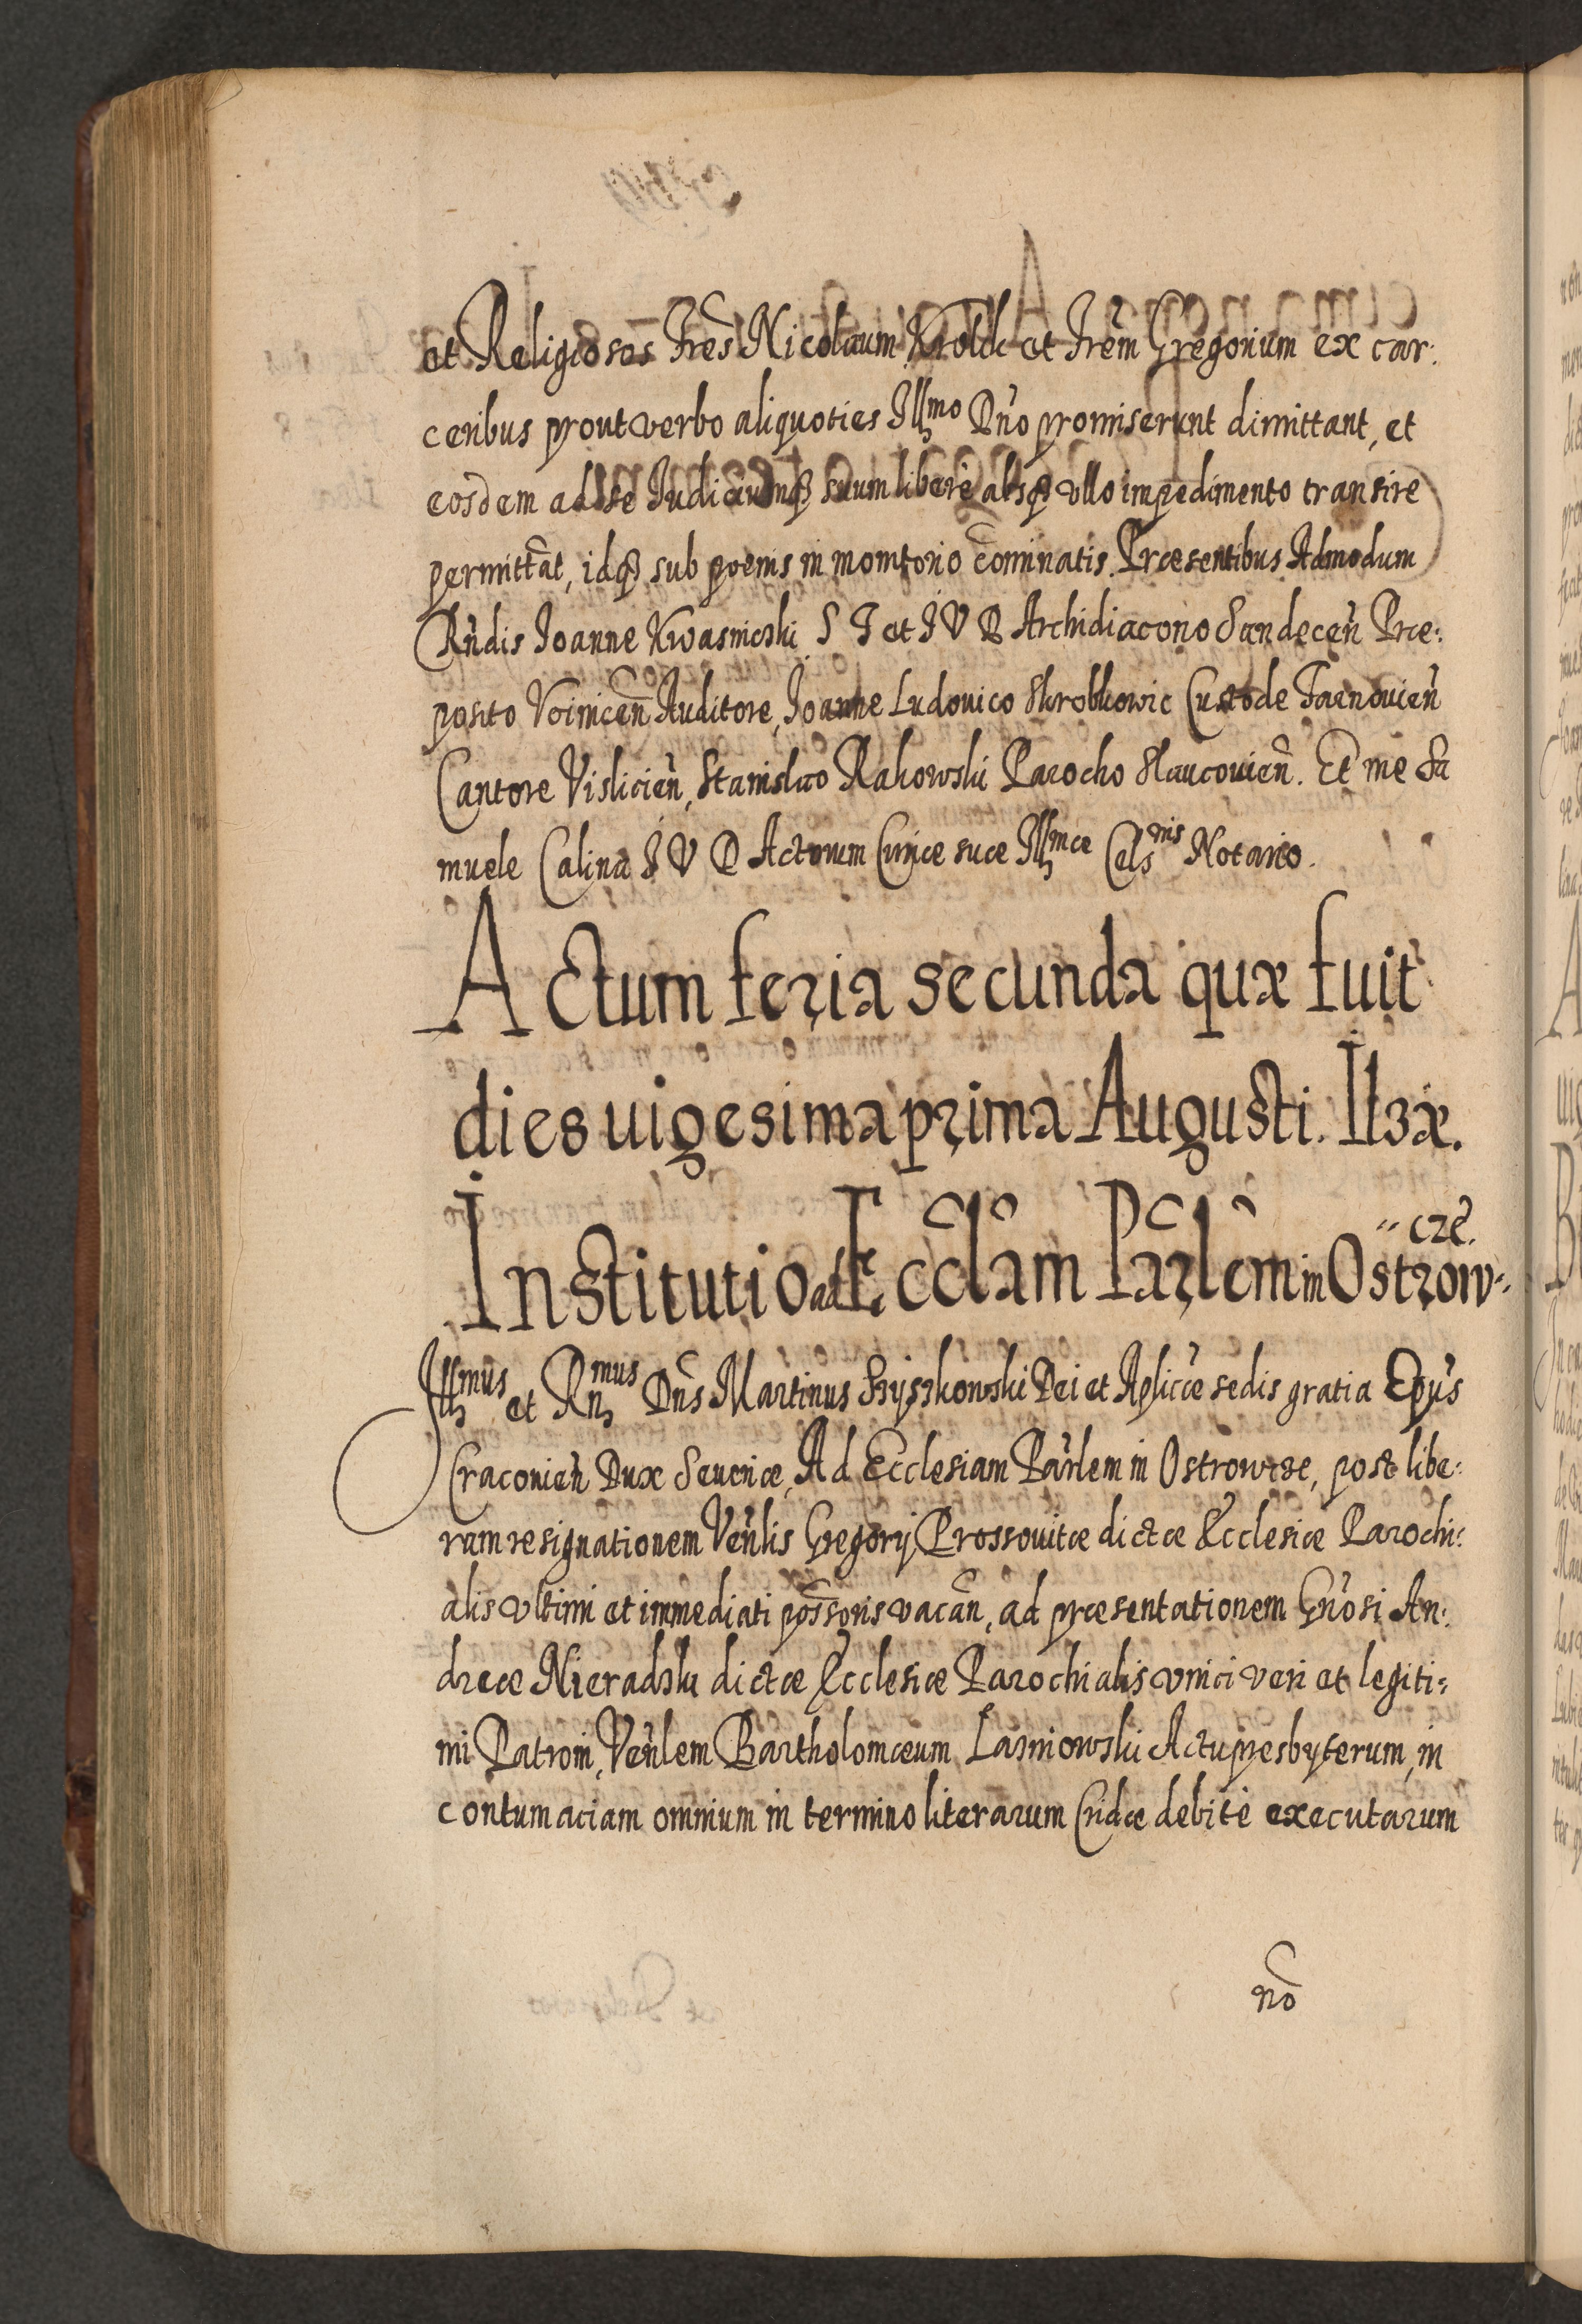 et Religiosos Fres̃ Nicolaum Krolik et Frem̃ Gregorium ex car:
ceribus prout verbo aliquoties Illmo Dño promiserunt dimittant, et
eosdem ad se Iudiciumq̃ suum liberè absq̃ vllo impedimento transire
permittãt, idq̃ sub poenis in monitorio com̃inatis. Præsentibus Admodum
Rñdis Ioanne Kwasnicski S T et I V D Archidiacono Sandeceñ Præ:
posito Voiniceñ Auditore, Ioanne Ludovico Skrobkowic Custode Tarnovieñ
Cantore Vislicieñ, Stanislao Rakowski Parocho Slaucovieñ. Et me Sa
muele Calina I V D Actorum Curiæ suæ Illmæ Celsnis Notario.
Actum feria secunda quæ fuit
dies uigesima prima Augusti. Ilzæ.
Institutio ad Ecclãm Parlem̃ in Ostrow-
cze.
Illmus et Rnmus Dñs Martinus Szyszkowski Dei et Aplicæ sedis gratia Epũs
Cracovieñ Dux Severiæ, Ad Ecclesiam Parl̃em in Ostrowcze, post libe:
ram resignationem Veñlis Gregorij Prossovitæ dictæ Ecclesiæ Parochi:
alis vltimi et immediati pos̃soris vacañ, ad præsentationem Gñosi An:
dreæ Nieradzki dictæ Ecclesiæ Parochialis vnici veri et legiti:
mi Patroni, Veñlem Bartholomæum Lasniowski Actu presbyterum, in
contumaciam omnium in termino literarum Cridæ debitè executarum
nõ